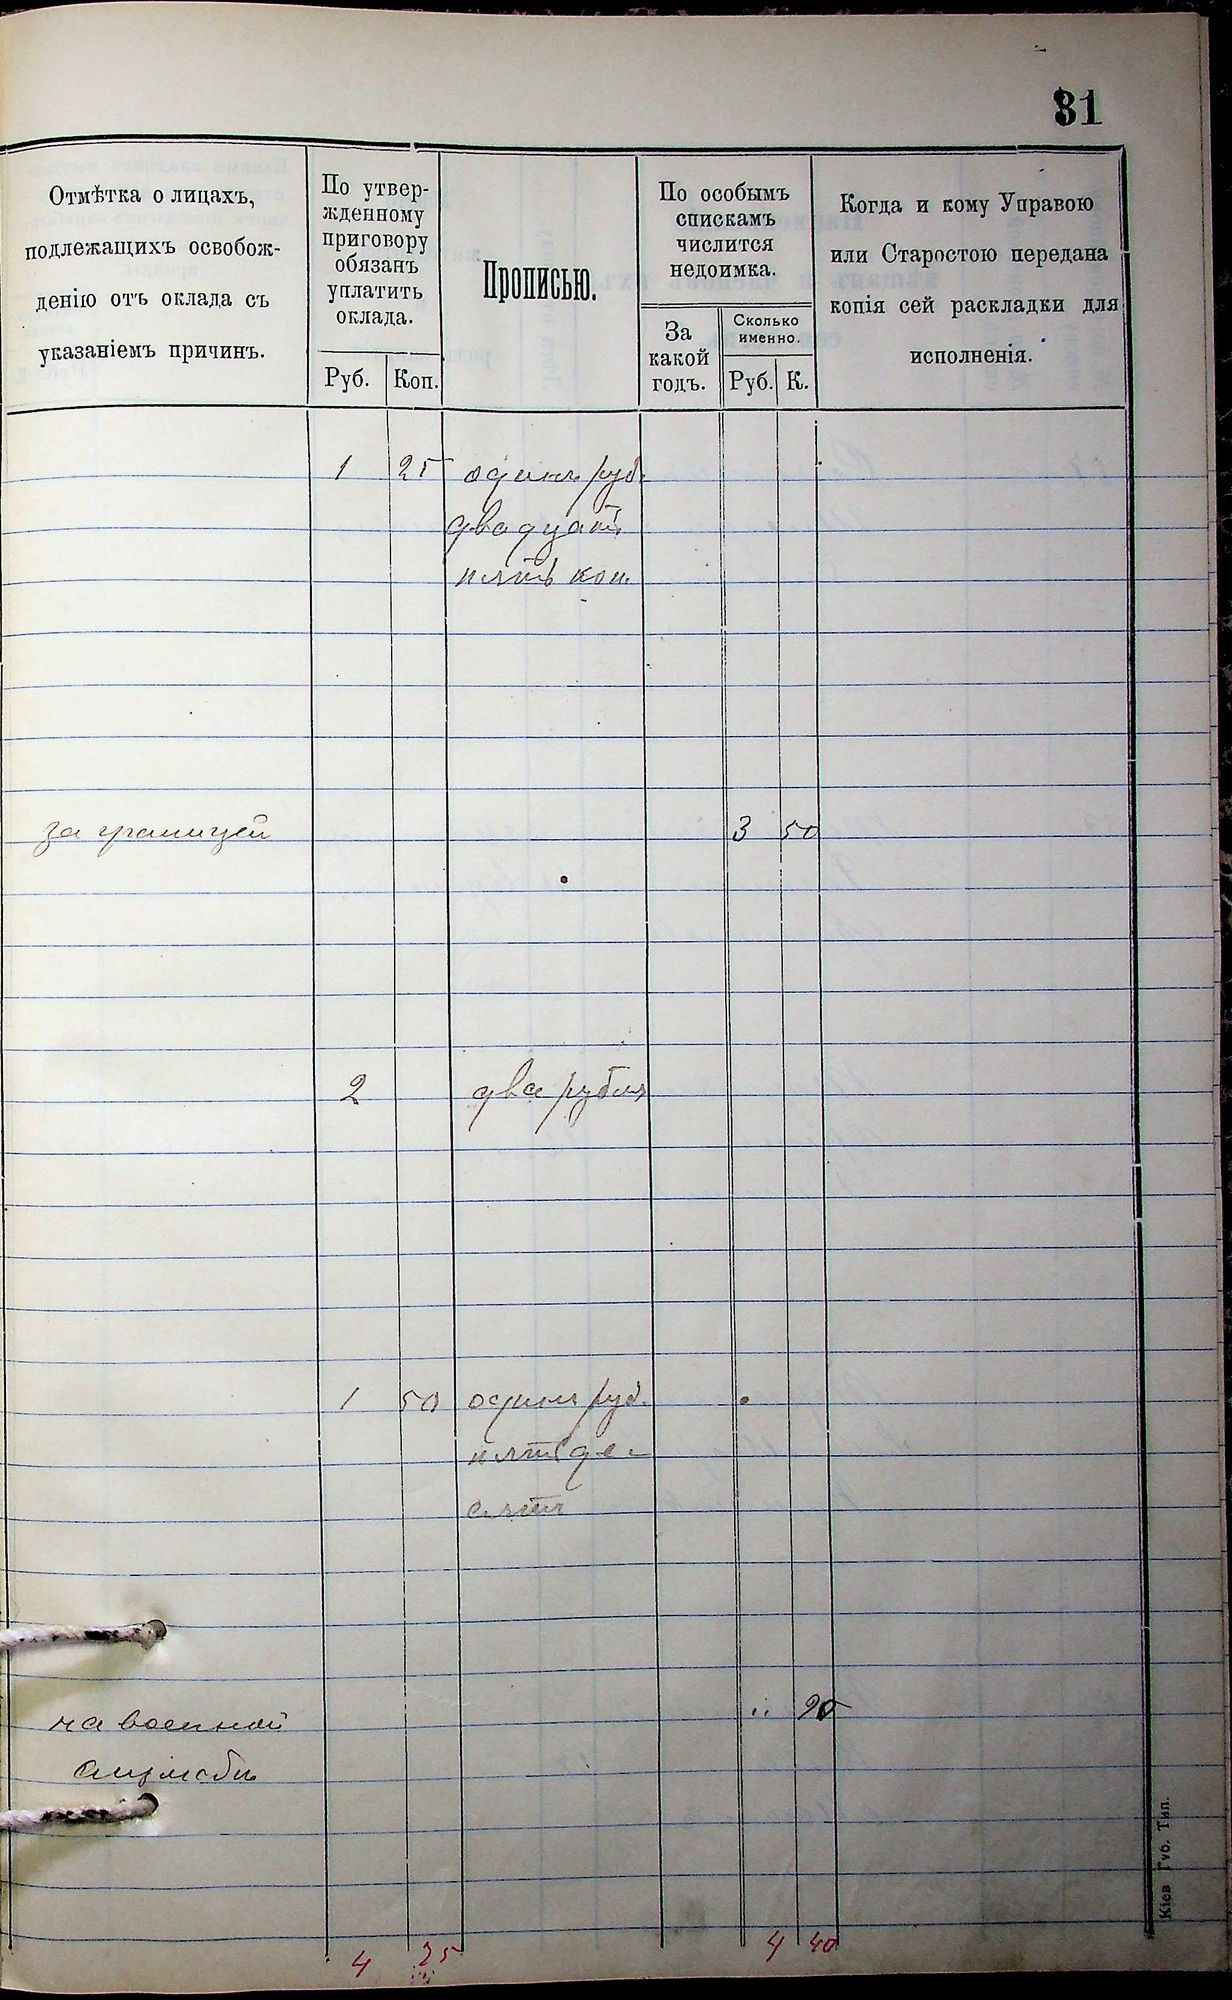 81
Отмѣтка о лицахъ,
подлежащихъ освобож-
денію отъ оклада съ
указаніемъ причинъ.
По утвер-
жденному
приговору
обязанъ
уплатить
оклада.
Руб. Коп.
Прописью.
По особымъ
спискамъ
числится
недоимка.
За
какой
годъ.
Сколько
именно.
Руб. К.
Когда и кому Управою
или Старостою передана
копія сей раскладки для
исполненія.
1 25 одинъ руб.
двадцать
пять коп.
за границей 3 50
2 два рубля
1 50 одинъ руб.
пятьде-
сятъ
на военной " 90
службѣ
4 75 4 40
Кіев Губ. Тип.